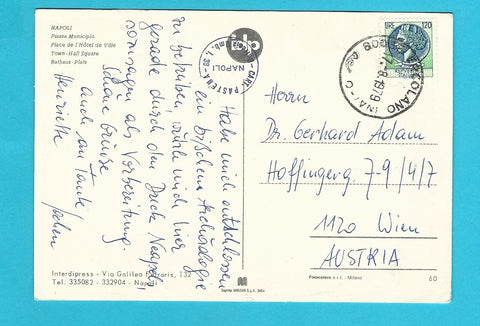 NAPOLI
Piazza Municipio
Place de l'Hôtel de Ville
Town-Hall Square
Rathaus-Platz
Habe mich entschlossen
ein bißchen Archäologie
zu betreiben, wühle mich hier
gerade durch den Dreck Neapels,
sozusagen als Vorbereitung.
Schöne Grüße
auch an Tante
Henriette
CART. PASTENA
NAPOLI
LIRE 120
8.1979
Herrn
Dr. Gerhard Adam
Hoffingerg. 7-9/4/7
1120 Wien
AUSTRIA
Interdipress - Via Galileo Ferraris, 132
Tel. 335082 - 332904 - Napoli
Fotocelere s.r.l. - Milano
60